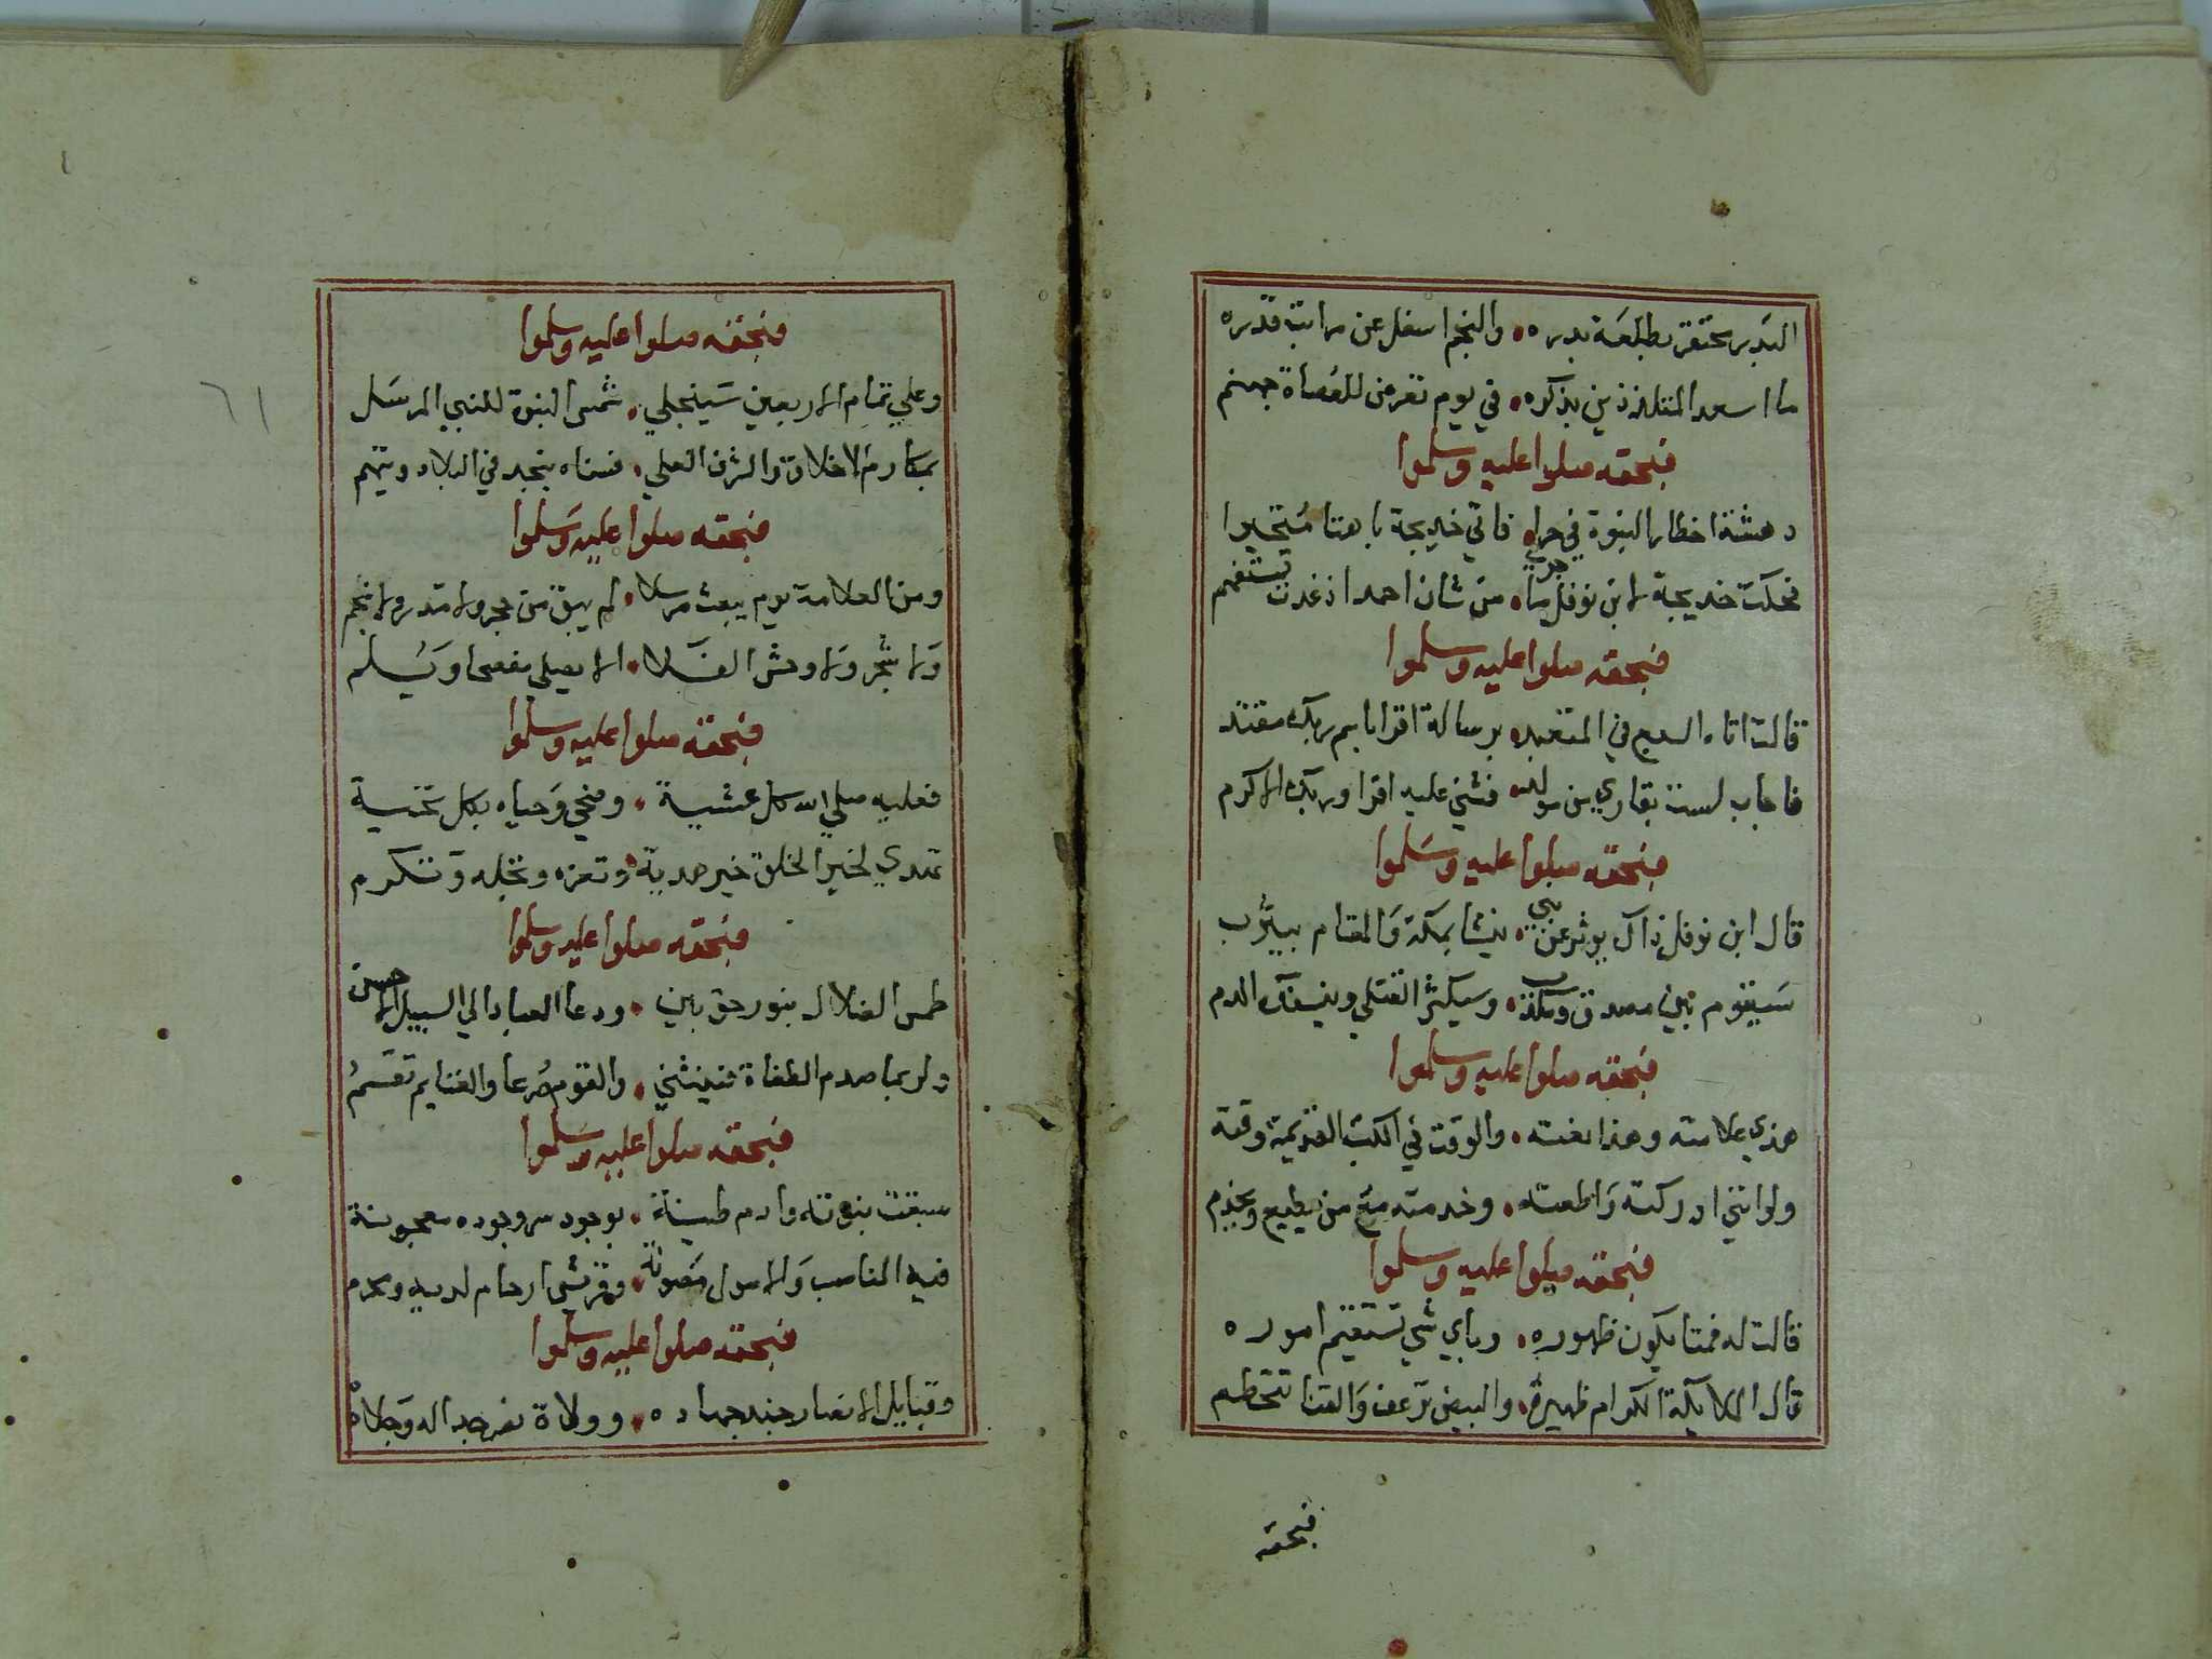 البدر محتقر بطلعة بدره • والنجم اسفل عن مراتب قدره
ما اسعد المتلذذين بذكره • في يوم تعرض للعصاة جهنم
فبحقه صلوا عليه وسلموا
دهشته اخطار النبوة في حرا • فاتي خديجة باهتا متحيرا
فحكت خديجة لابن نوفل ما جري • من شان احمد اذ غدت تستفهم
فبحقه صلوا عليه وسلموا
قالت اتاه السبع في المتعبد • برسالة اقرا باسم ربك مفتند
فاجاب لست بقاري من مولد • فثني عليه اقرا وربك الاكرم
فبحقه صلوا عليه وسلموا
قال ابن نوفل ذاك يوثر عن نبي • ينشا بمكة والمقام بيثرب
سيقوم بين مصدق ومكذب • وسيكثر القتلي وينسفك الدم
فبحقه صلوا عليه وسلموا
هذي علامته وهذا نعته • والوقت في الكتب القديمة وقته
ولو انني ادركته واطعته • وخدمته مع من يطيع ويخدم
فبحقه صلوا عليه وسلموا
قالت له فمتا يكون ظهوره • وباي شي تستقيم اموره
قال الملايكة الكرام ظهيره • والبيض ترعف والقنا تتحطم
فبحقه
٦١
فبحقه صلوا عليه وسلموا
وعلي تمام الاربعين سينجلي • شمس النبوة للنبي المرسل
بمكارم الاخلاق والشرف العلي • فسناه ينجد في البلاد ويتهم
فبحقه صلوا عليه وسلموا
ومن العلامة يوم يبعث مرسلا • لم يبق من حجر ولا مدر ولا نجم
ولا شجر ولا وحش الفلا • الا يصلي مفصحا ويسلم
فبحقه صلوا عليه وسلموا
فعليه صلي الله كل عشية • وضحي وحياه بكل تحية
تهدي لخير الخلق خير هدية • وتعزه وتجله وتكرم
فبحقه صلوا عليه وسلموا
طمس الضلال بنور حق بين • ودعا العباد الي السبيل الاحسن
ولربما صدم الطغاة فينثني • والقوم صرعا والغنايم تقسم
فبحقه صلوا عليه وسلموا
سبقت نبوته وادم طينة • بوجود سر وجوده معجونة
فيه المناصب والاصول مصونة • وقريش ارحام لديه ومحرم
فبحقه صلوا عليه وسلموا
وقبايل الانصار جند جهاده • وولاة نصر جداله وجلاده